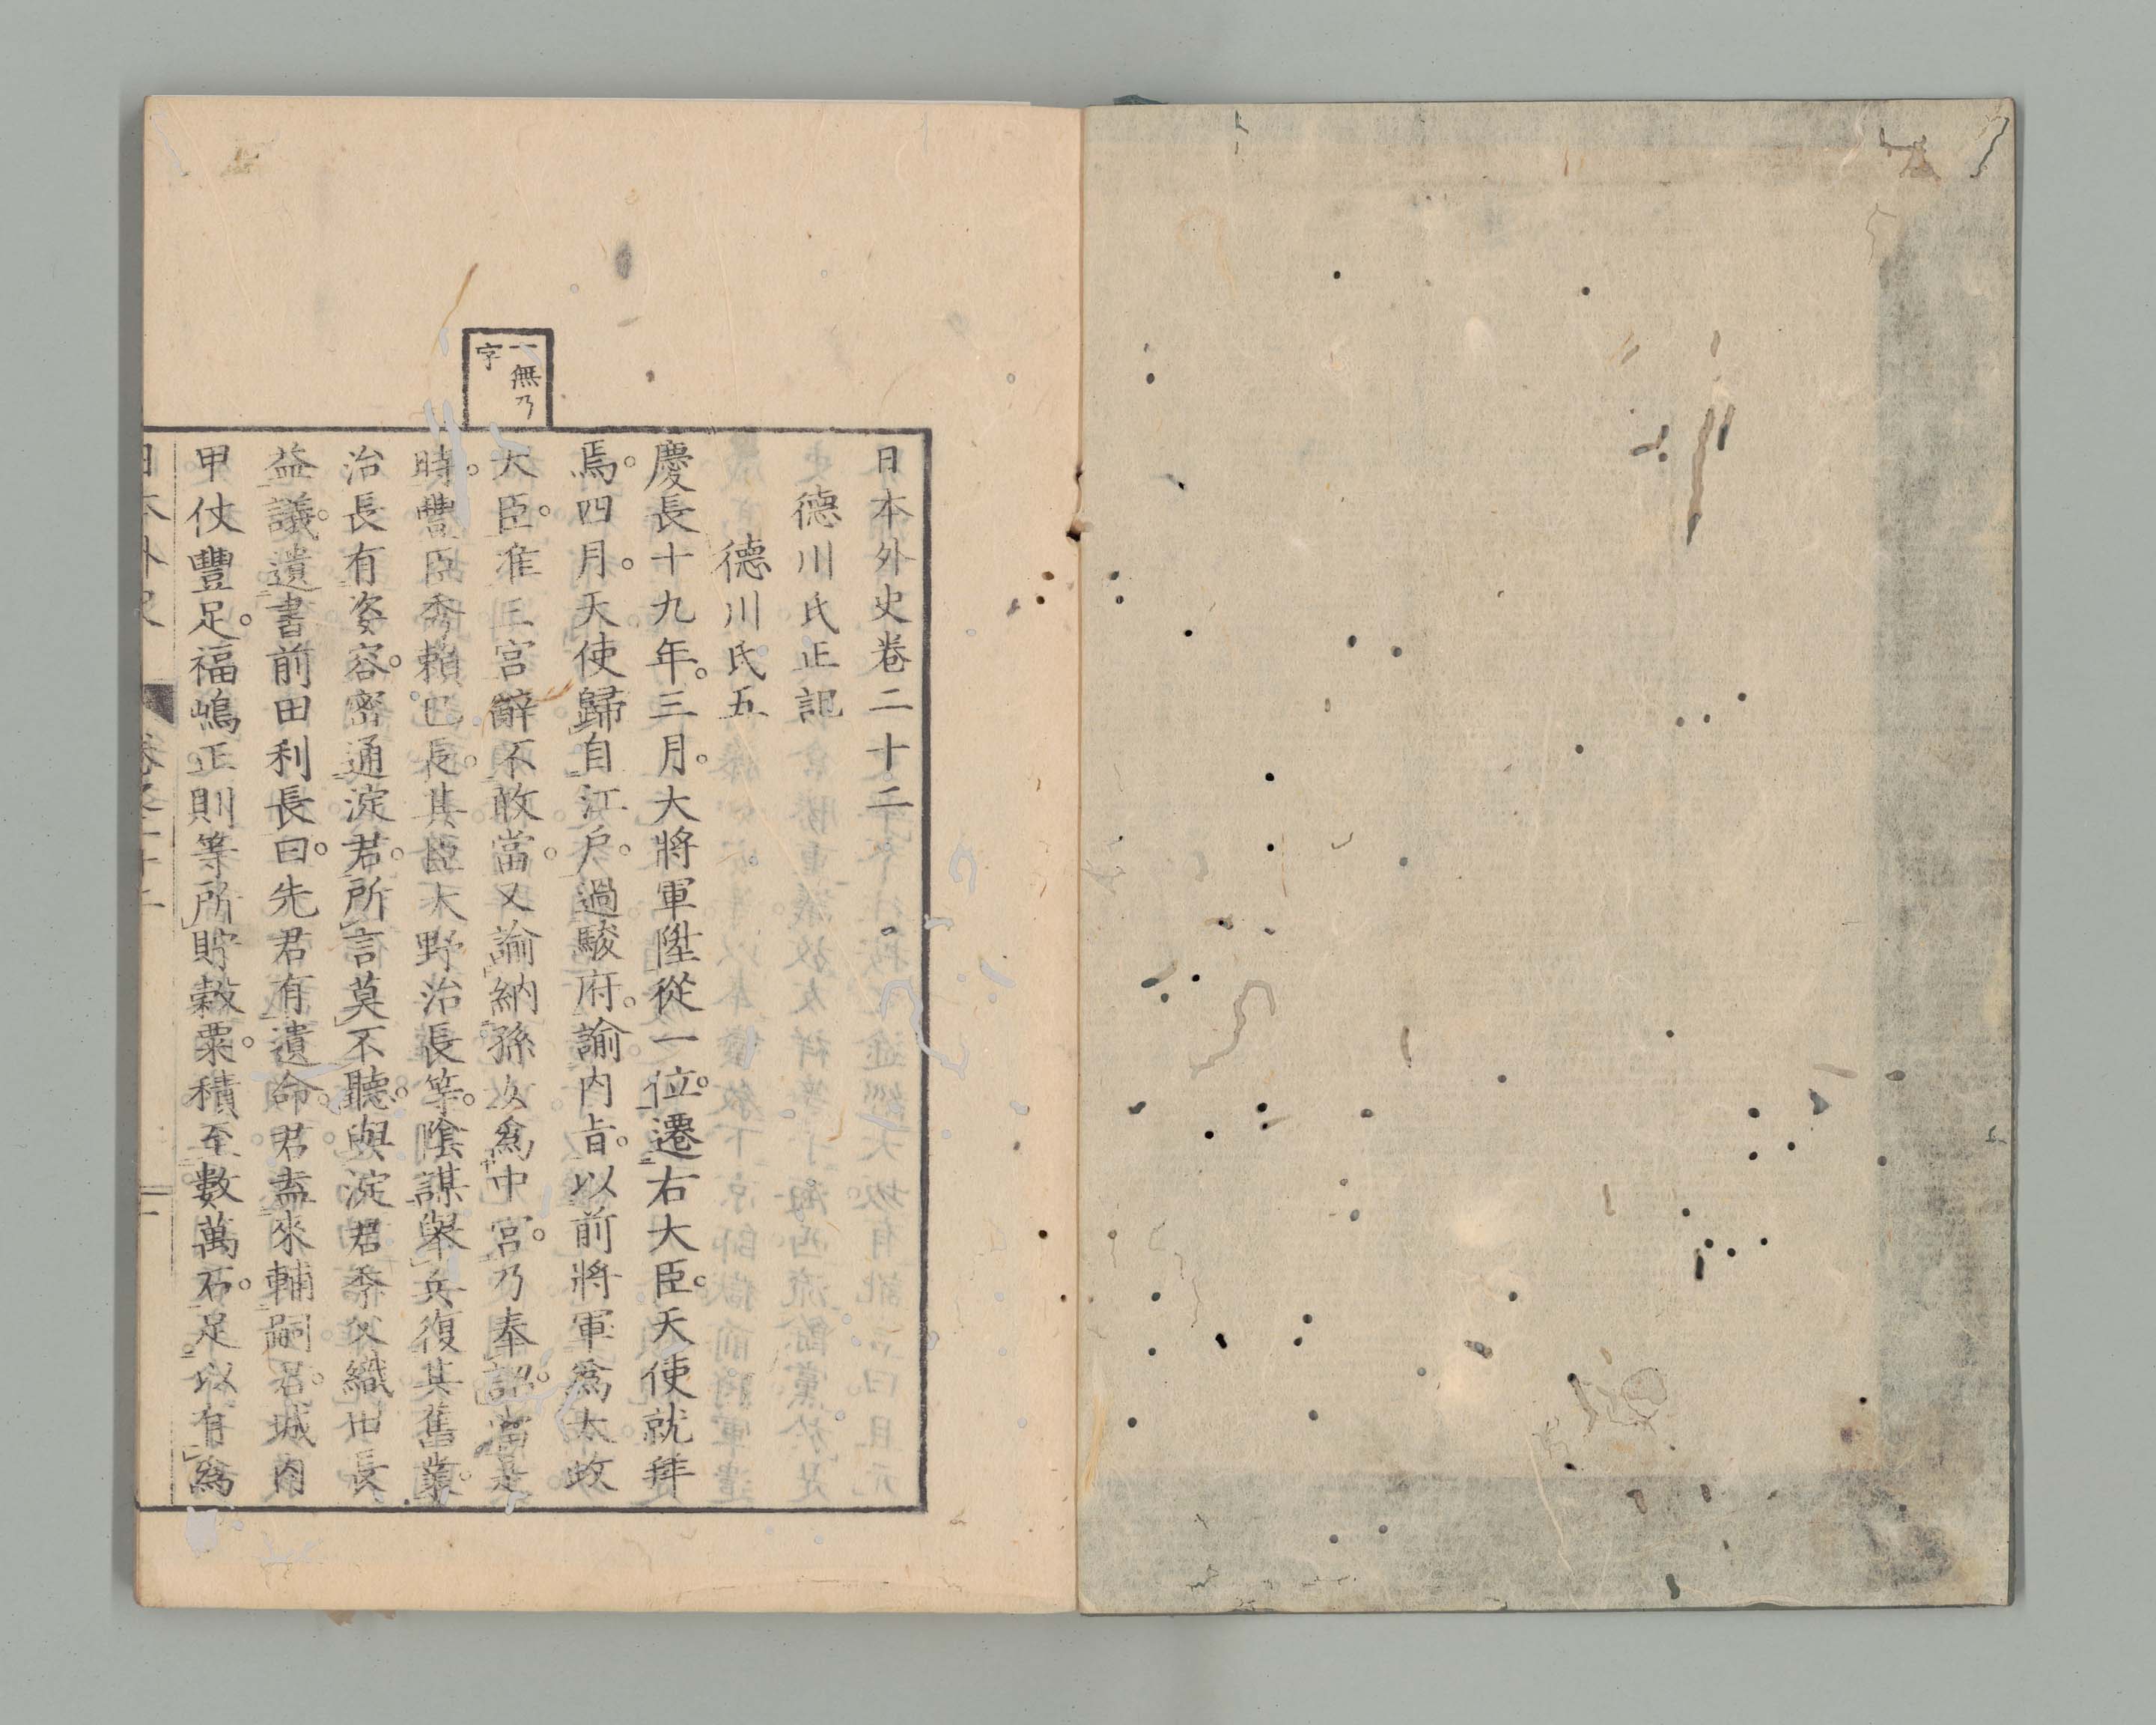 日本外史卷二十二
德川氏正記
德川氏五
慶長十九年。三月。大將軍陞從一位。遷右大臣。天使就拜
焉。四月。天使歸自江戶。過駿府。諭內旨。以前將軍爲太政
大臣。准三宮。辭不敢當。又諭納孫女爲中宮。乃奉詔。當是
時。豐臣秀賴已長。其臣大野治長等。陰謀舉兵復其舊業。
治長有姿容。密通淀君。所言莫不聽。與淀君季父織田長
益議。遺書前田利長曰。先君有遺命。君盍來輔嗣君。城內
甲仗豐足。福嶋正則等所貯穀粟。積至數萬石。足以有爲
一無乃
字
日本外史 卷之二十二 一